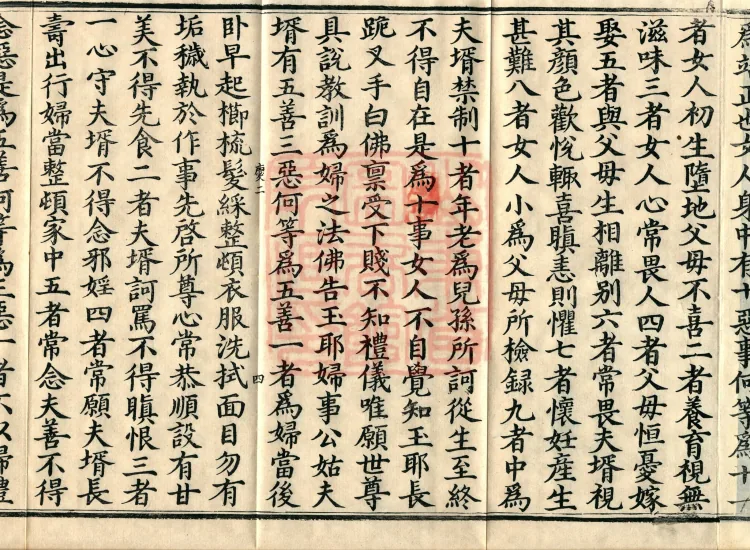 端正世女人身中有十惡事何等爲十一
者女人初生墮地父母不喜二者養育視無
滋味三者女人心常畏人四者父母恒憂嫁
娶五者與父母生相離別六者常畏夫壻視
其顏色歡悅輙喜瞋恚則懼七者懷妊產生
甚難八者女人小爲父母所檢録九者中爲
夫壻禁制十者年老爲兒孫所訶從生至終
不得自在是爲十事女人不自覺知玉耶長
跪叉手白佛禀受下賤不知禮儀唯願世尊
具說教訓爲婦之法佛告玉耶婦事公姑夫
壻有五善三惡何等爲五善一者爲婦當後
四
卧早起櫛梳髮綵整頓衣服洗拭面目勿有
垢穢執於作事先啓所尊心常恭順設有甘
美不得先食二者夫壻訶罵不得瞋恨三者
一心守夫壻不得念邪婬四者常願夫壻長
壽出行婦當整頓家中五者常念夫善不得
念惡是爲五善何等爲三惡一者不以婦禮